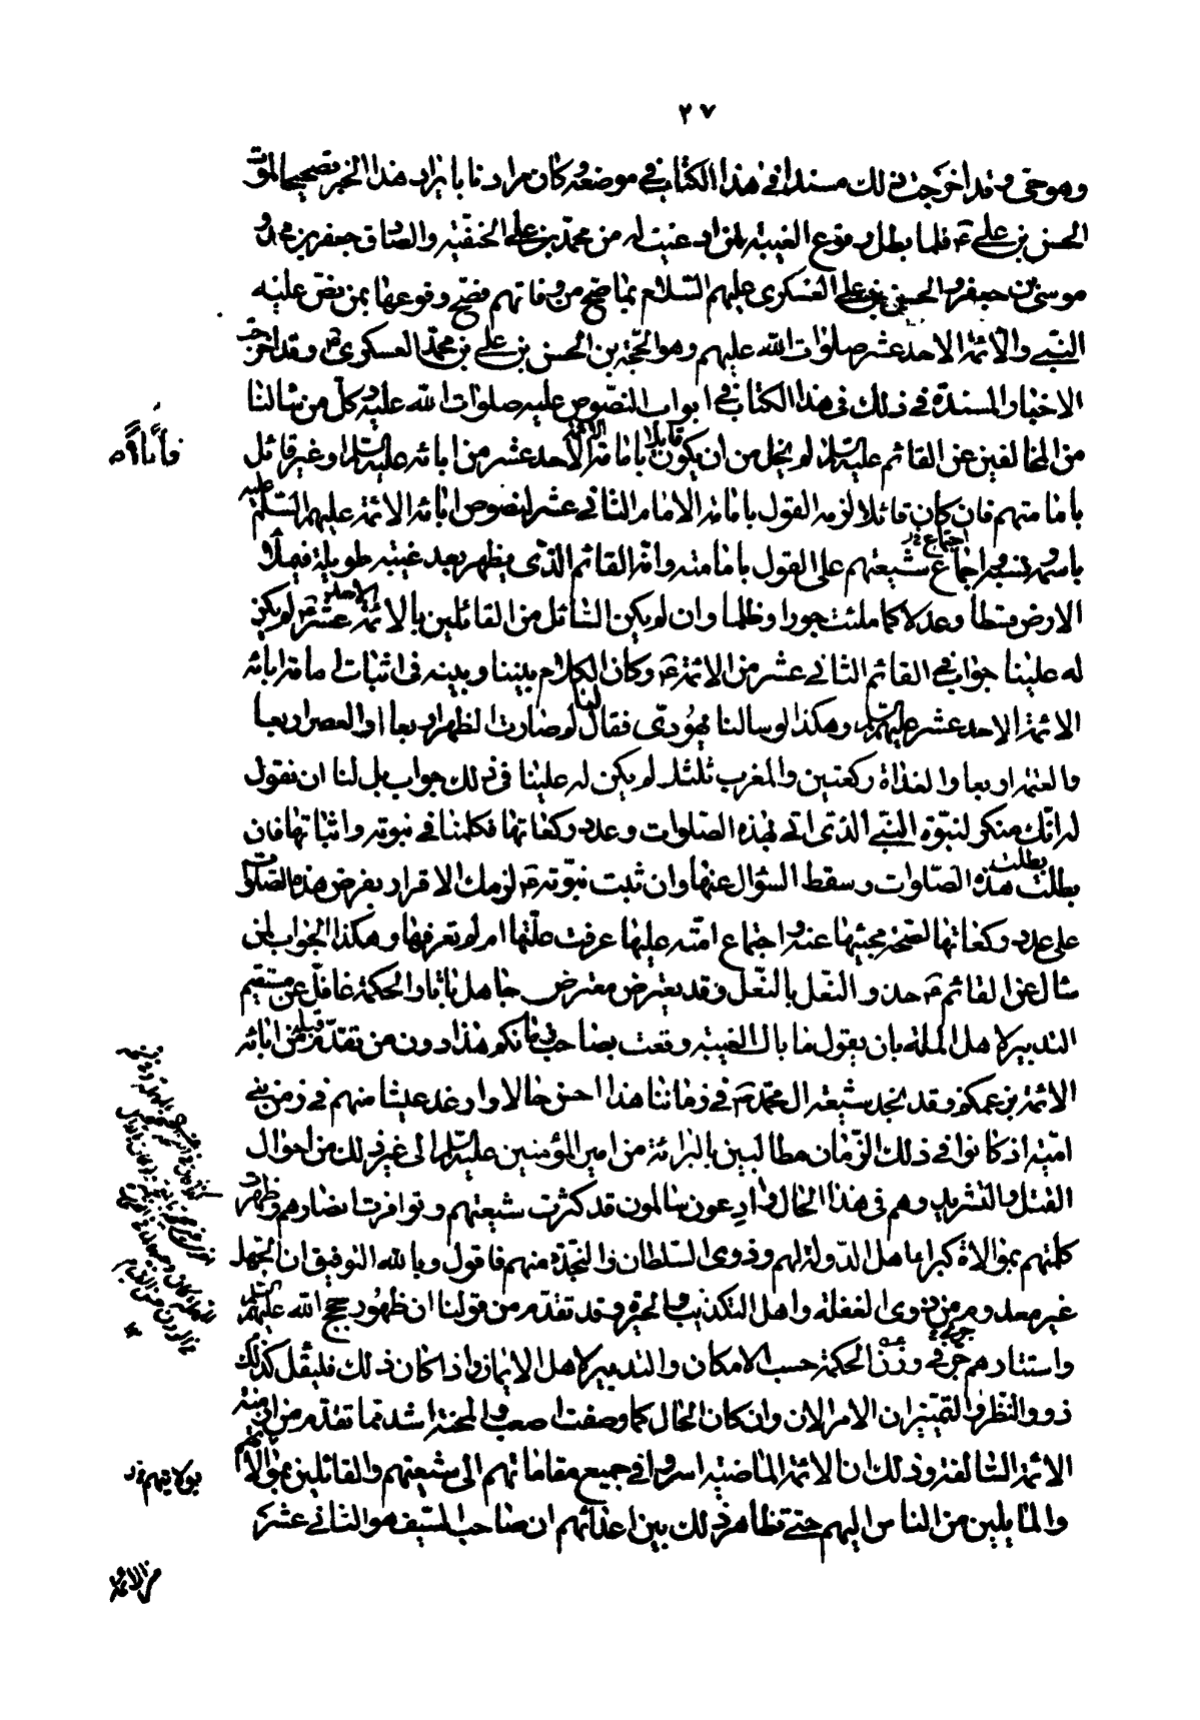 ٢٧
وهو حي وقد اخرجت ذلك مسندا في هذا الكتاب في موضعه كان مرادنا بايراد هذا الخبر تصحيحا لموت
الحسن بن علي ع فلما بطل وقوع الغيبة لمن ادعيت له من محمد بن علي الحنفية والصادق جعفر بن محمد و
موسى بن جعفر والحسن بن علي العسكري عليهم السلام بما صح من وفاتهم فصح وقوعها بمن نص عليه
النبي والائمة الاحد عشر صلوات الله عليهم وهو الحجة بن الحسن بن علي بن محمد العسكري وقد اخرجت
الاخبار المسندة في ذلك في هذا الكتاب في ابواب النصوص عليه صلوات الله عليه وكل من سالنا
من المخالفين عن القائم عليه السلام لم يخل من ان يكون قائلا بامامة الائمة الاحد عشر من ابائه عليهم السلام او غير قائل
بامامتهم فان كان قائلا لزمه القول بامامة الامام الثاني عشر لنصوص ابائه الائمة عليهم السلام عليه
باسمه ونسبه واجماع شيعتهم على القول بامامته وانه القائم الذي يظهر بعد غيبة طويلة فيملأ
الارض قسطا وعدلا كما ملئت جورا وظلما وان لم يكن السائل من القائلين بالائمة الاحد عشر ع لم يكن
له علينا جواب في القائم الثاني عشر من الائمة ع وكان الكلام بيننا وبينه في اثبات امامة ابائه
الائمة الاحد عشر عليهم السلام وهكذا لو سالنا يهودي فقال لنا لم صارت الظهر اربعا والعصر اربعا
والعتمة اربعا والغداة ركعتين والمغرب ثلثا لم يكن له علينا في ذلك جواب بل لنا ان نقول
له انك منكر لنبوة النبي الذي اتى بهذه الصلوات وعدد ركعاتها فكلمنا في نبوته واثباتها فان
بطلت بطلت هذه الصلوات وسقط السؤال عنها وان ثبتت نبوته ع لزمك الاقرار بفرض هذه الصلوات
على عدد ركعاتها لصحة مجيئها عنه واجتماع امته عليها عرفت علتها ام لم تعرفها وهكذا الجواب لمن
سال عن القائم ع حذو النعل بالنعل وقد يعترض معترض جاهل باثار الحكمة غافل عن مستقيم
التدبير لاهل الملة بان يقول ما بال الغيبة وقعت بصاحب زمانكم هذا دون من تقدم قبله من ابائه
الائمة بزعمكم وقد نجد شيعة ال محمد ع في زماننا هذا احسن حالا وارغد عيشا منهم في زمن بني
امية اذ كانوا في ذلك الزمان مطالبين بالبرائة من امير المؤمنين عليه السلام الى غير ذلك من احوال
القتل والتشريد وهم في هذا الحال وادعون سالمون قد كثرت شيعتهم وتوافرت انصارهم وظهرت
كلمتهم بموالاة كبراء اهل الدولة لهم وذوي السلطان والنجدة منهم فاقول وبالله التوفيق ان الجهل
غير معدوم من ذوي الغفلة واهل التكذيب والحيرة وقد تقدم من قولنا ان ظهور حجج الله عليهم السلام
واستتارهم جرى في وزن الحكمة حسب الامكان والتدبير لاهل الايمان واذا كان ذلك كذلك فليقل
ذوو النظر والتمييز ان الامر الان وان كان الحال كما وصفت اصعب والمحنة اشد مما تقدم من ازمنة
الائمة السالفة وذلك ان الائمة الماضية اسروا في جميع مقاماتهم الى شيعتهم والقائلين بموالاتهم
والمايلين من الناس اليهم حتى تظاهر ذلك بين اعدائهم ان صاحب السيف هو الثاني عشر
بولايتهم
من الائمة